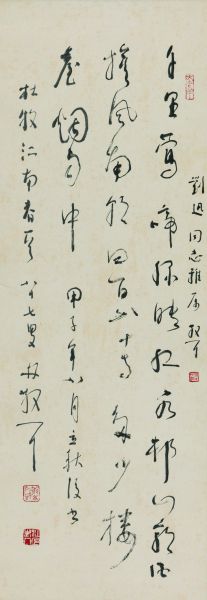 劉迅同志雅属散耳
千里鶯啼綠映紅水邨山郭酒
旗風南朝四百八十寺多少樓
臺烟雨中甲子年八月立秋後書
杜牧江南春八十七叟林散耳